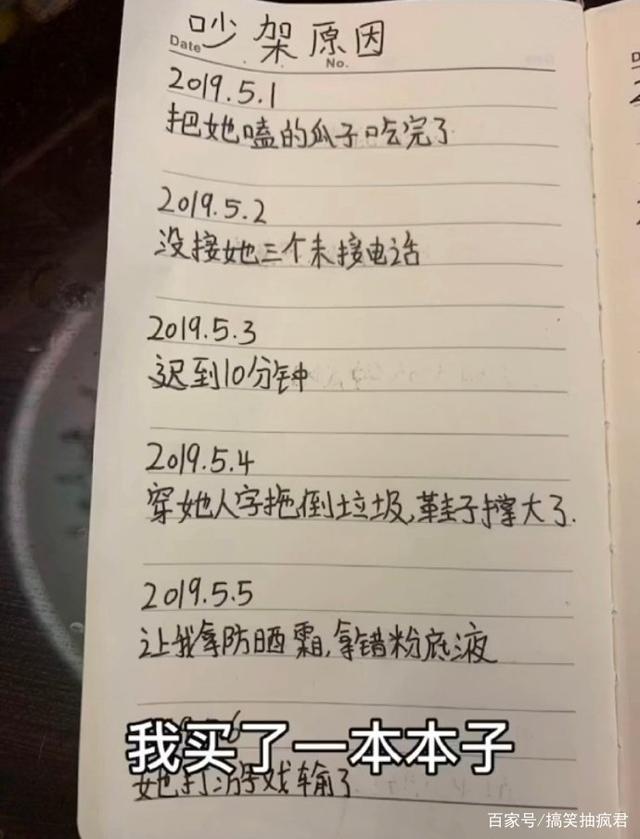 吵架原因
Date
No.
2019.5.1
把她嗑的瓜子吃完了
2019.5.2
没接她三个未接电话
2019.5.3
迟到10分钟
2019.5.4
穿她人字拖倒垃圾,鞋子撑大了.
2019.5.5
让我拿防晒霜,拿错粉底液
我买了一本本子
她打游戏输了
百家号/搞笑抽疯君